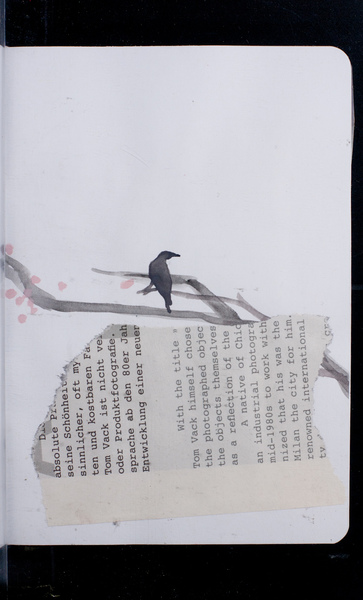 absolute
seine Schönheit
sinnlicher, oft my
ten und kostbaren Fa
Tom Vack ist nicht ve
oder Produktfotografie.
sprache ab den 80er Jah
Entwicklung einer neuer
With the title "
Tom Vack himself chose
the photographed objec
the objects themselves
as a reflection of the
A native of Chic
an industrial photogra
mid-1980s to work with
nized that his was the
Milan the city for him.
renowned international
ty